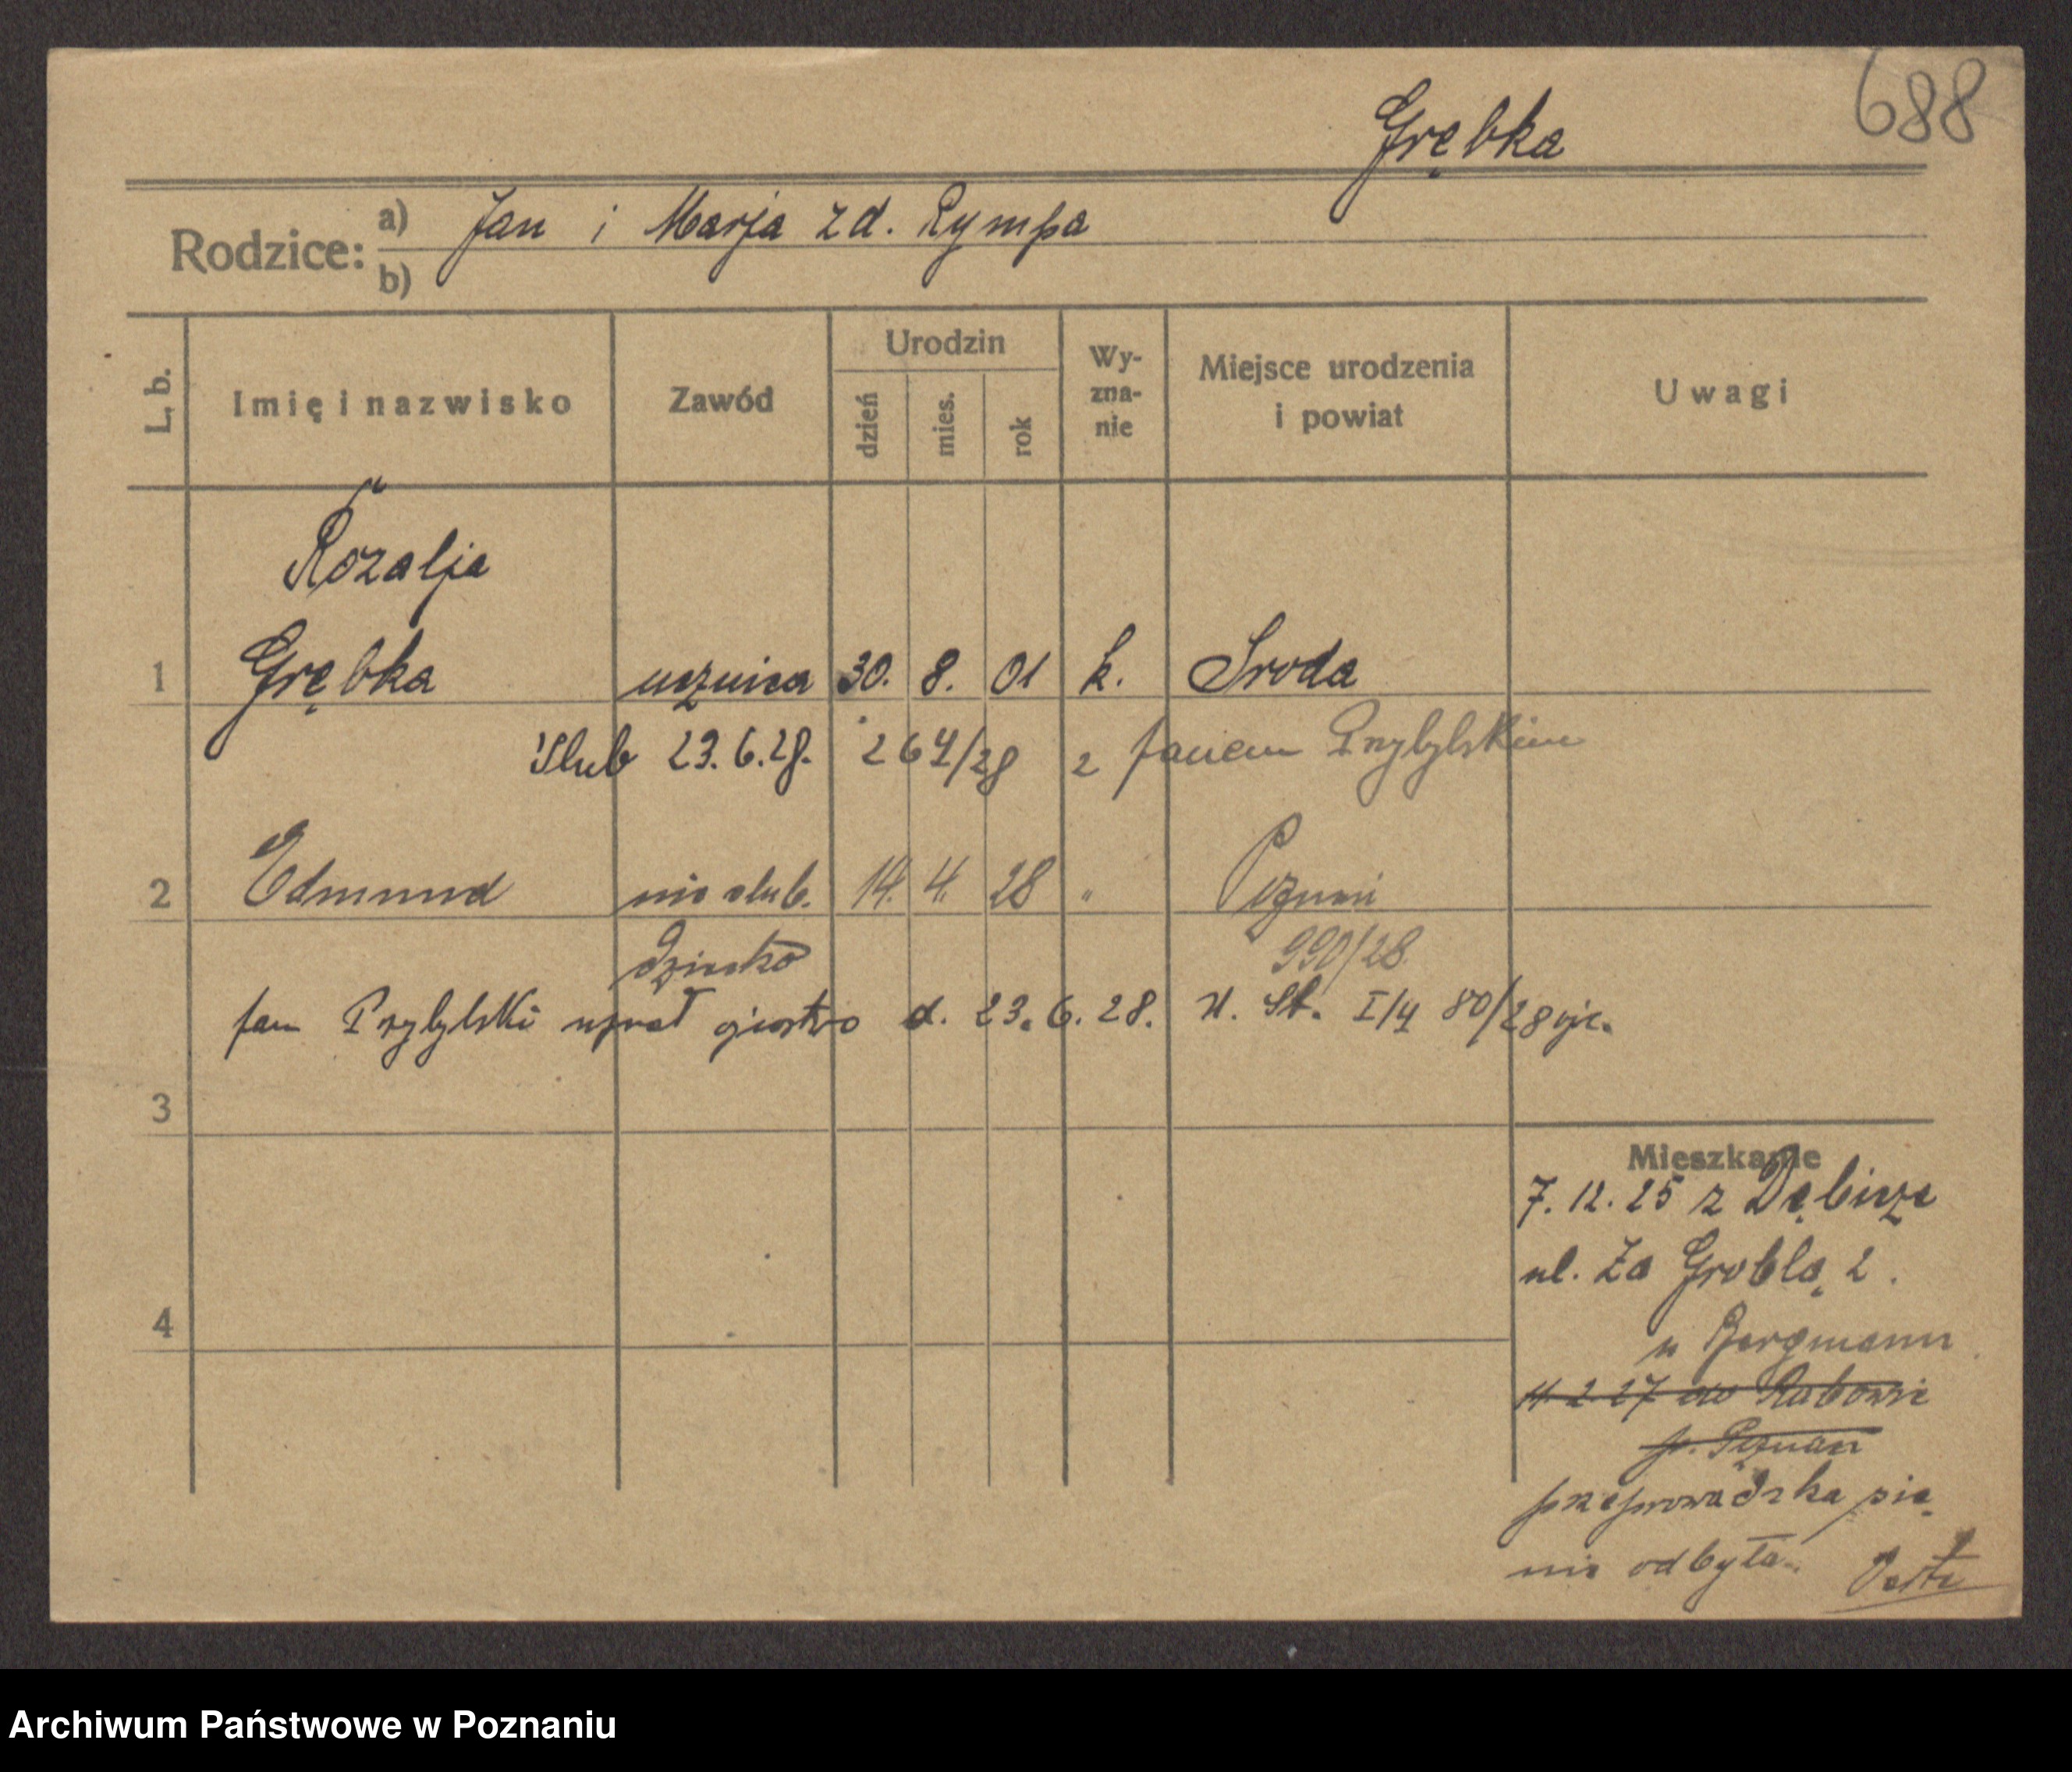 688
Grębka
Rodzice: a) Jan i Marja zd. Rympa
b)
L. b. Imię i nazwisko Zawód Urodzin dzień mies. rok Wy-zna-nie Miejsce urodzenia i powiat Uwagi
Rozalja
1 Grębka ucznica 30. 8. 01 k. Sroda
Slub 23.6.28. 264/28 z Janem Przybylskim
2 Edmund nieslub. 14. 4. 28 " Poznań
dziecko 990/28
Jan Przybylski uznał ojcostwo d. 23.6.28. U. St. I/4 80/28 ojc.
3
Mieszkanie
7. 12. 25 z Dębicze
ul. Za Groblą 2.
4
u Bergmann
11. 2. 27 do Rabowic
p. Poznań
przeprowadzka się
nie odbyła.
Archiwum Państwowe w Poznaniu